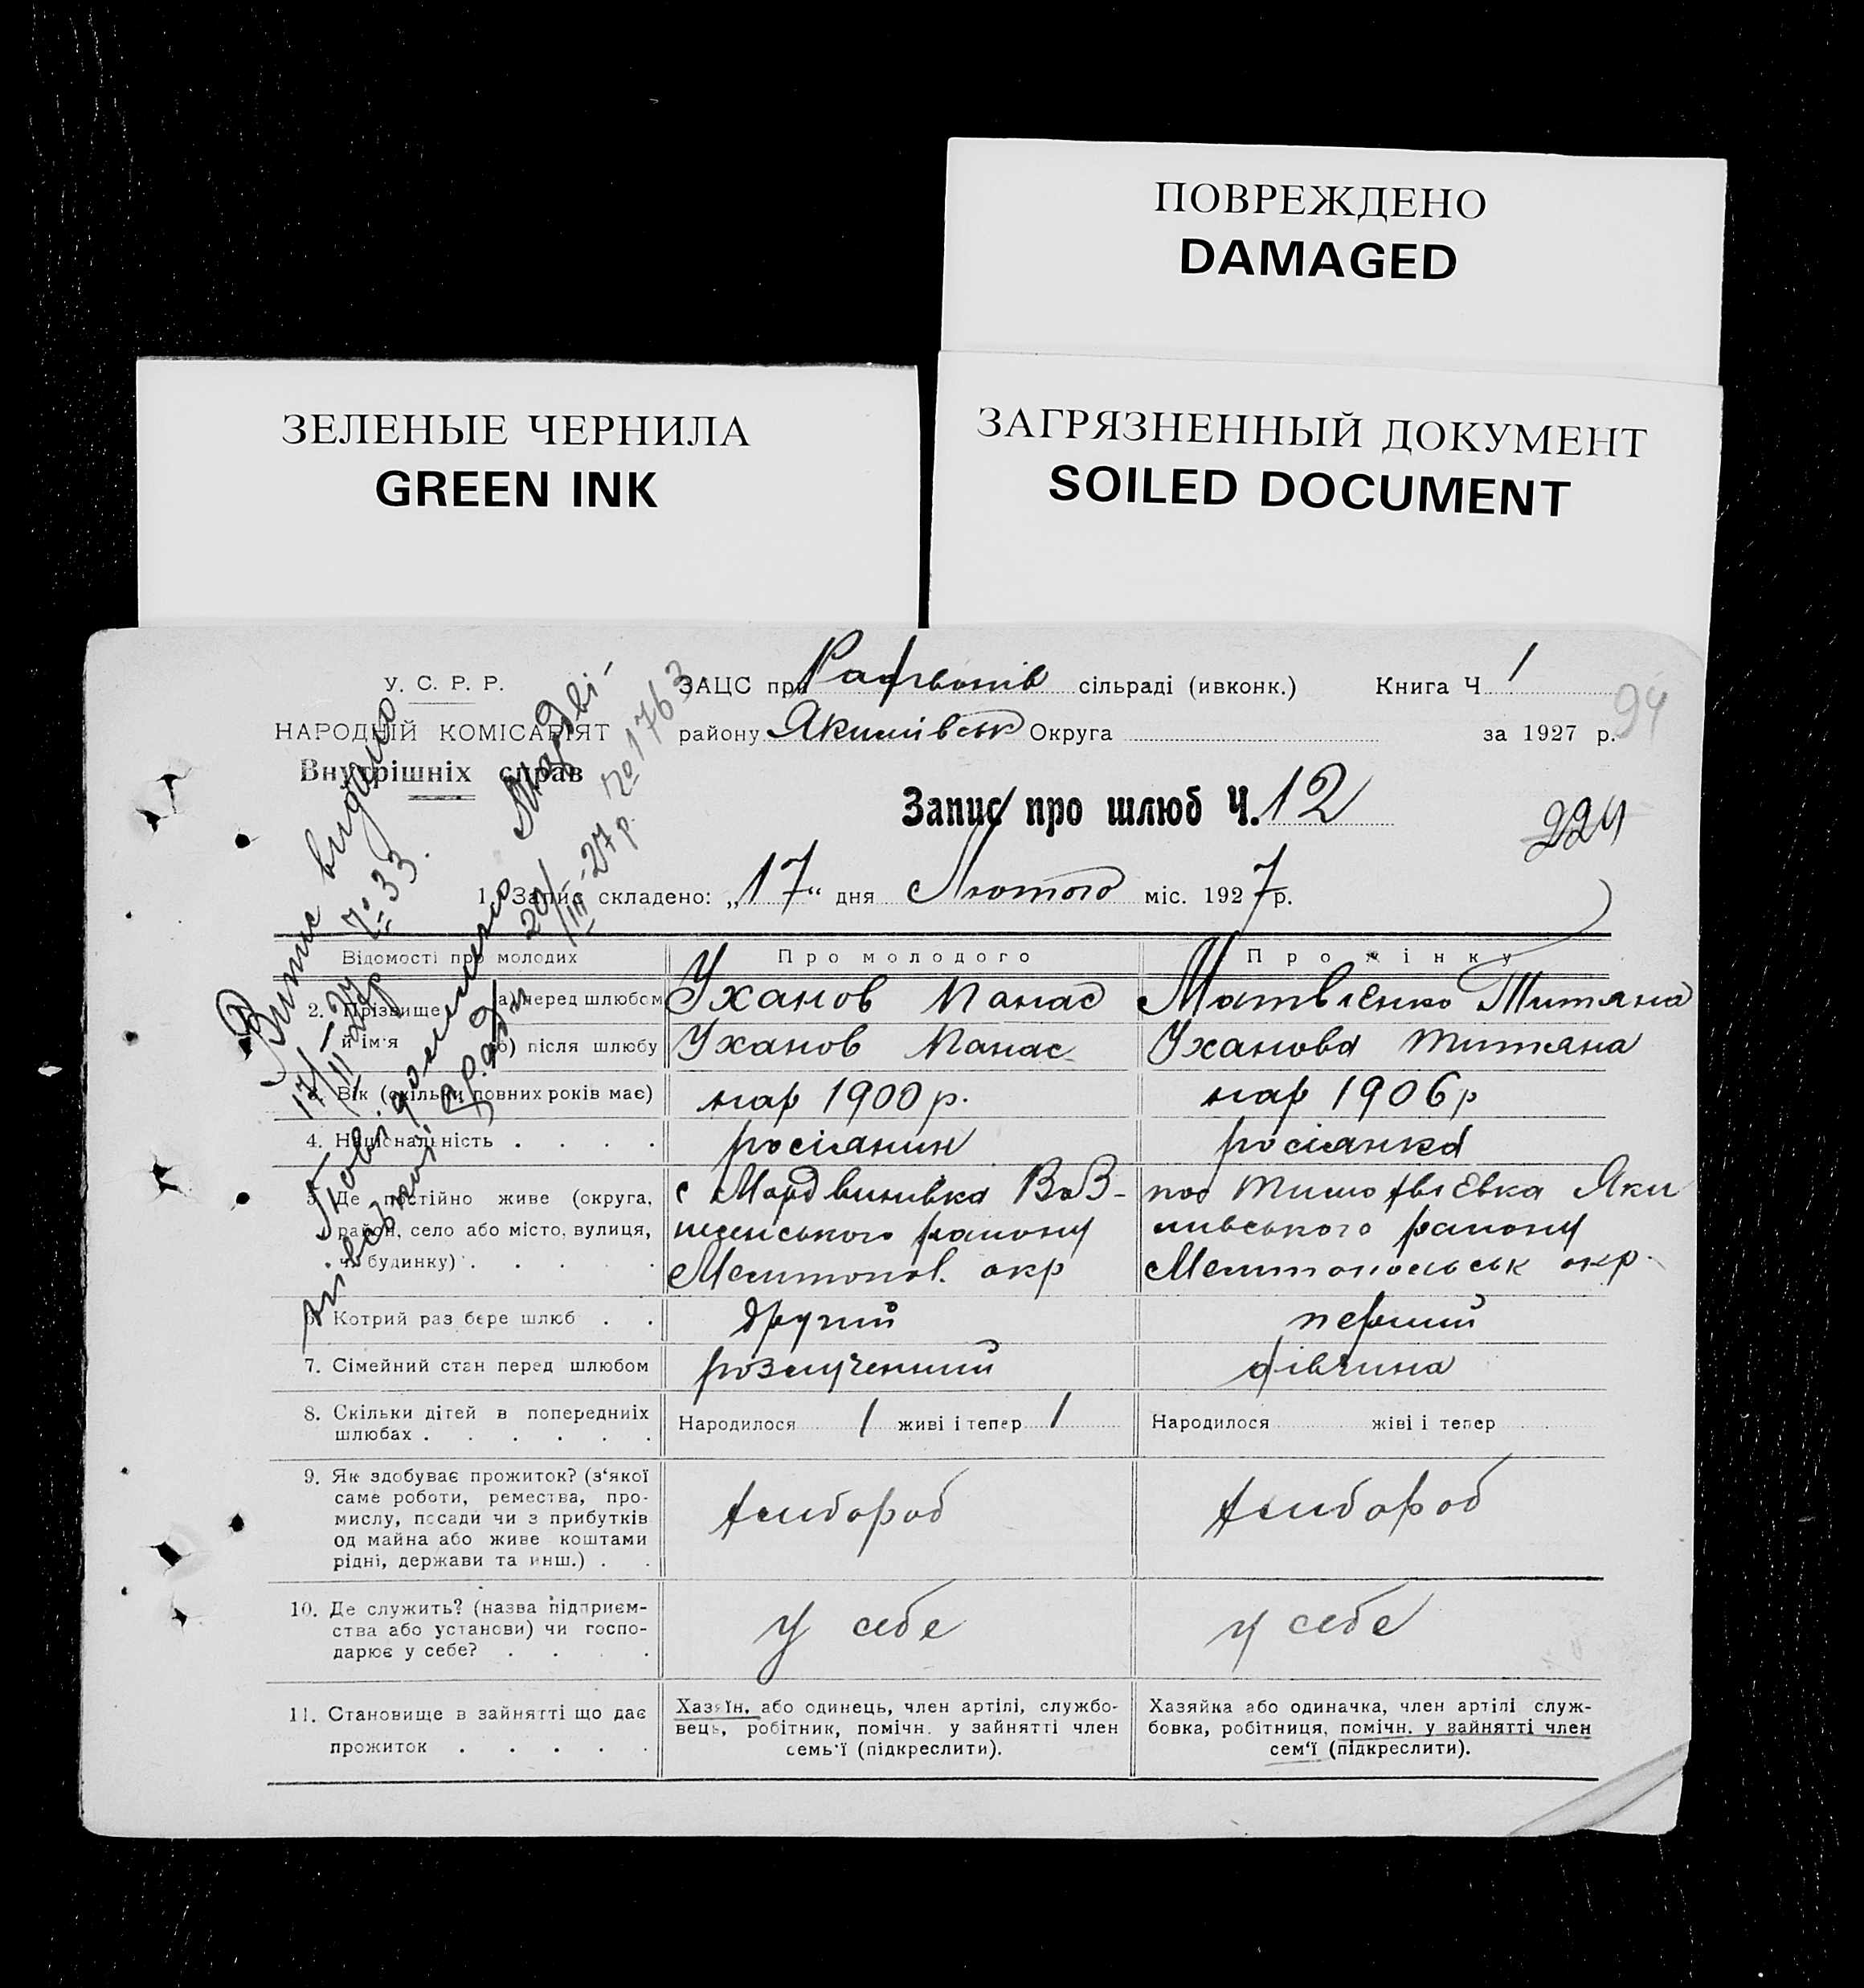 ПОВРЕЖДЕНО
DAMAGED
ЗЕЛЕНЫЕ ЧЕРНИЛА
GREEN INK
ЗАГРЯЗНЕННЫЙ ДОКУМЕНТ
SOILED DOCUMENT
У. С. Р. Р.
НАРОДНІЙ КОМІСАРІЯТ
Внутрішніх справ
ЗАЦС при сільраді (ивконк.) Книга Ч 1
94
району Якимівськ Округа за 1927 р.
Запис про шлюб Ч. 12
224
1. Запис складено: „17" дня Лютого міс. 1927 р.
Витис видано
17/II 27 р № 33.
Мордві-
20/III-27 р. № 1763
Відомості про молодих Про молодого Про жінку
2. Прізвище й ім'я
а) перед шлюбом Уханов Панас Матвієнко Титяна
б) після шлюбу Уханов Панас Уханова Титяна
3. Вік (скільки повних років має) нар 1900 р. нар 1906 р
4. Національність росіянин росіянка
5. Де постійно живе (округа, район, село або місто, вулиця, ч. будинку)
с Мордвинівка ВоЗ-
ненського району
Мелитопол. окр
пос Тимофвієвка Яки
мивського району
Мелитопольськ окр.
6. Котрий раз бере шлюб другий первший
7. Сімейний стан перед шлюбом розлученний дівчина
8. Скільки дітей в попередниіх
шлюбах
Народилося 1 живі і тепер 1 Народилося жіві і тепер
9. Як здобуває прожиток? (з'якої
саме роботи, ремества, про-
мислу, посади чи з прибутків
од майна або живе коштами
рідні, держави та инш.)
хлибороб хлибороб
10. Де служить? (назва підприєм-
ства або установи) чи госпо-
дарює у себе?
у себе у себе
11. Становище в зайнятті що дає
прожиток
Хазяїн, або одинець, член артілі, службо-
вець, робітник, помічн. у зайнятті член
семь'ї (підкреслити).
Хазяйка або одиначка, член артілі служ-
бовка, робітниця, помічн. у зайнятті член
сем'ї (підкреслити).